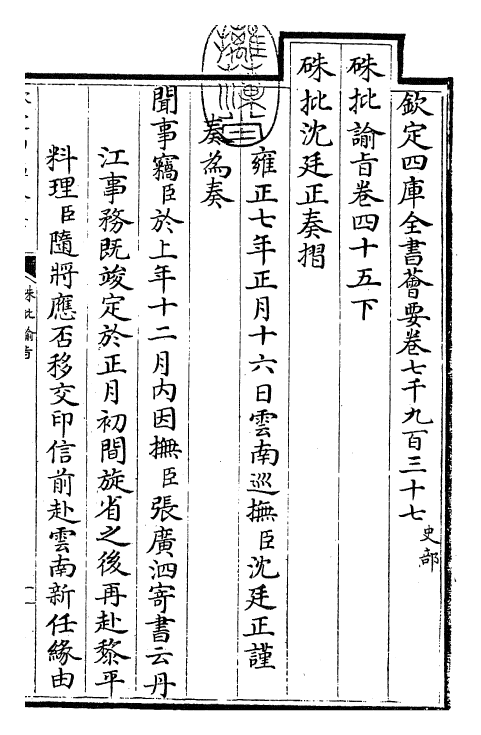 欽定四庫全書薈要卷七千九百三十七 史部
硃批諭旨卷四十五下
硃批沈廷正奏摺
雍正七年正月十六日雲南巡撫臣沈廷正謹
奏為奏
聞事竊臣於上年十二月內因撫臣張廣泗寄書云丹
江事務既竣定於正月初間旋省之後再赴黎平
料理臣隨將應否移交印信前赴雲南新任緣由
硃批諭旨